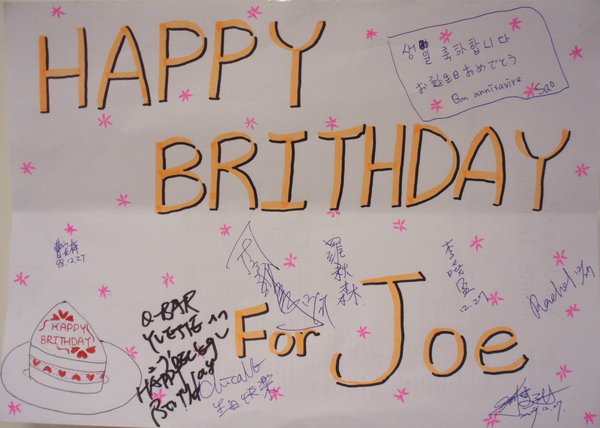 HAPPY
생일 축하합니다
お誕生日おめでとう
Bon annisavire
Sao
BRITHDAY
98.12.27
羅
秋
森
李
盈
12.27
Rachel 12/27
For Joe
HAPPY
BRITHDAY
Q-BAR
YVETTE
HAPPY
Birthday
生日快樂